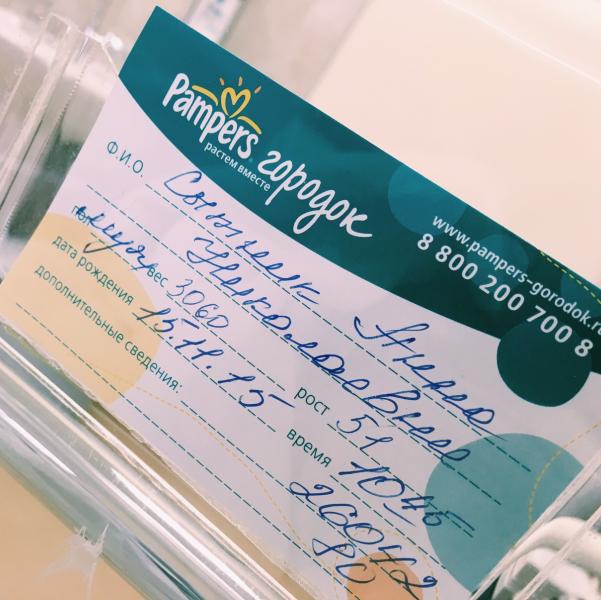 Pampers
растем вместе
городок
www.pampers-gorodok.r
8 800 200 700 8
Ф.И.О.
Николаевна
пол муж вес 3060 рост 51
дата рождения 15.11.15 время 10 45
дополнительные сведения:
26042